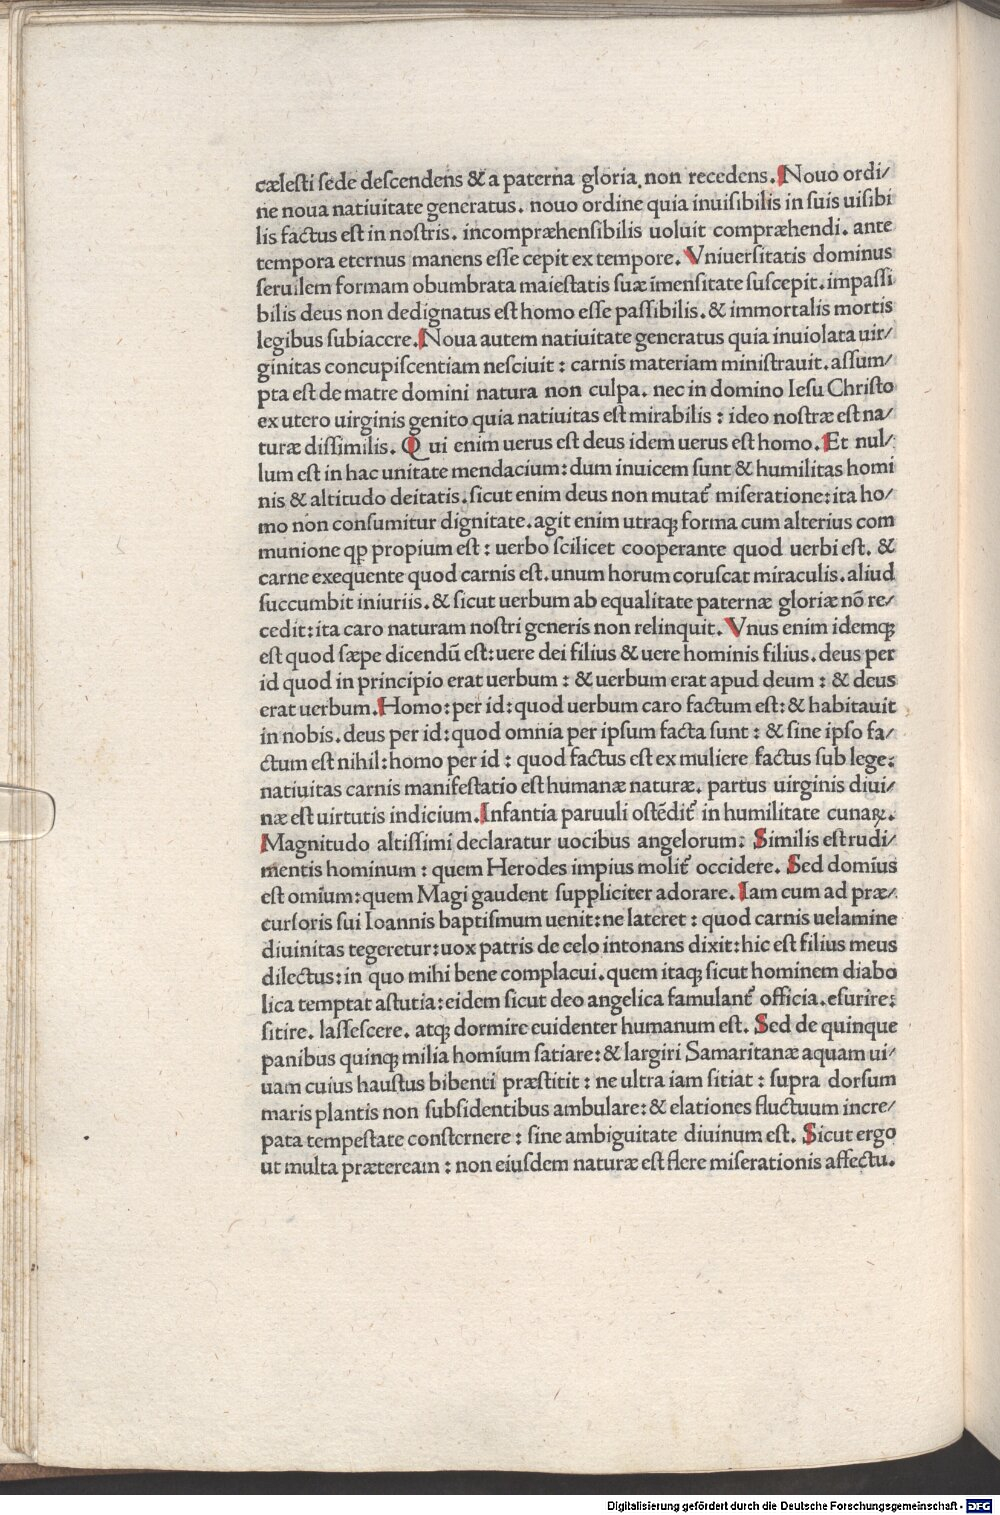 cælesti sede descendens & a paterna gloria non recedens. Nouo ordi/
ne noua natiuitate generatus. nouo ordine quia inuisibilis in suis uisibi
lis factus est in nostris. incompræhensibilis uoluit compræhendi. ante
tempora eternus manens esse cepit ex tempore. Vniuersitatis dominus
seruilem formam obumbrata maiestatis suæ īmensitate suscepit. impassi
bilis deus non dedignatus est homo esse passibilis. & immortalis mortis
legibus subiacere. Noua autem natiuitate generatus quia inuiolata uir/
ginitas concupiscentiam nesciuit : carnis materiam ministrauit. assum/
pta est de matre domini natura non culpa. nec in domino Iesu Christo
ex utero uirginis genito quia natiuitas est mirabilis : ideo nostræ est na/
turæ dissimilis. Qui enim uerus est deus idem uerus est homo. Et nul/
lum est in hac unitate mendacium: dum inuicem sunt & humilitas homi
nis & altitudo deitatis. sicut enim deus non mutat᷒ miseratione: ita ho/
mo non consumitur dignitate. agit enim utraqꝫ forma cum alterius com
munione qꝓ propium est : uerbo scilicet cooperante quod uerbi est. &
carne exequente quod carnis est. unum horum coruscat miraculis. aliud
succumbit iniuriis. & sicut uerbum ab equalitate paternæ gloriæ nō re/
cedit: ita caro naturam nostri generis non relinquit. Vnus enim idemqꝫ
est quod sæpe dicendū est: uere dei filius & uere hominis filius. deus per
id quod in principio erat uerbum : & uerbum erat apud deum : & deus
erat uerbum. Homo: per id: quod uerbum caro factum est: & habitauit
in nobis. deus per id: quod omnia per ipsum facta sunt : & sine ipso fa/
ctum est nihil: homo per id : quod factus est ex muliere factus sub lege:
natiuitas carnis manifestatio est humanæ naturæ. partus uirginis diui/
næ est uirtutis indicium. Infantia paruuli ostēdit᷒ in humilitate cunaꝝ.
Magnitudo altissimi declaratur uocibus angelorum: Similis est rudi/
mentis hominum : quem Herodes impius molit᷒ occidere. Sed domīus
est omīum: quem Magi gaudent suppliciter adorare. Iam cum ad præ/
cursoris sui Ioannis baptismum uenit: ne lateret : quod carnis uelamine
diuinitas tegeretur: uox patris de celo intonans dixit: hic est filius meus
dilectus: in quo mihi bene complacui. quem itaqꝫ sicut hominem diabo
lica temptat astutia: eidem sicut deo angelica famulant᷒ officia. esurire:
sitire. lassescere. atqꝫ dormire euidenter humanum est. Sed de quinque
panibus quinqꝫ milia homīum satiare: & largiri Samaritanæ aquam ui/
uam cuius haustus bibenti præstitit : ne ultra iam sitiat : supra dorsum
maris plantis non subsidentibus ambulare: & elationes fluctuum incre/
pata tempestate consternere : sine ambiguitate diuinum est. Sicut ergo
ut multa præteream : non eiusdem naturæ est flere miserationis affectu.
Digitalisierung gefördert durch die Deutsche Forschungsgemeinschaft - DFG